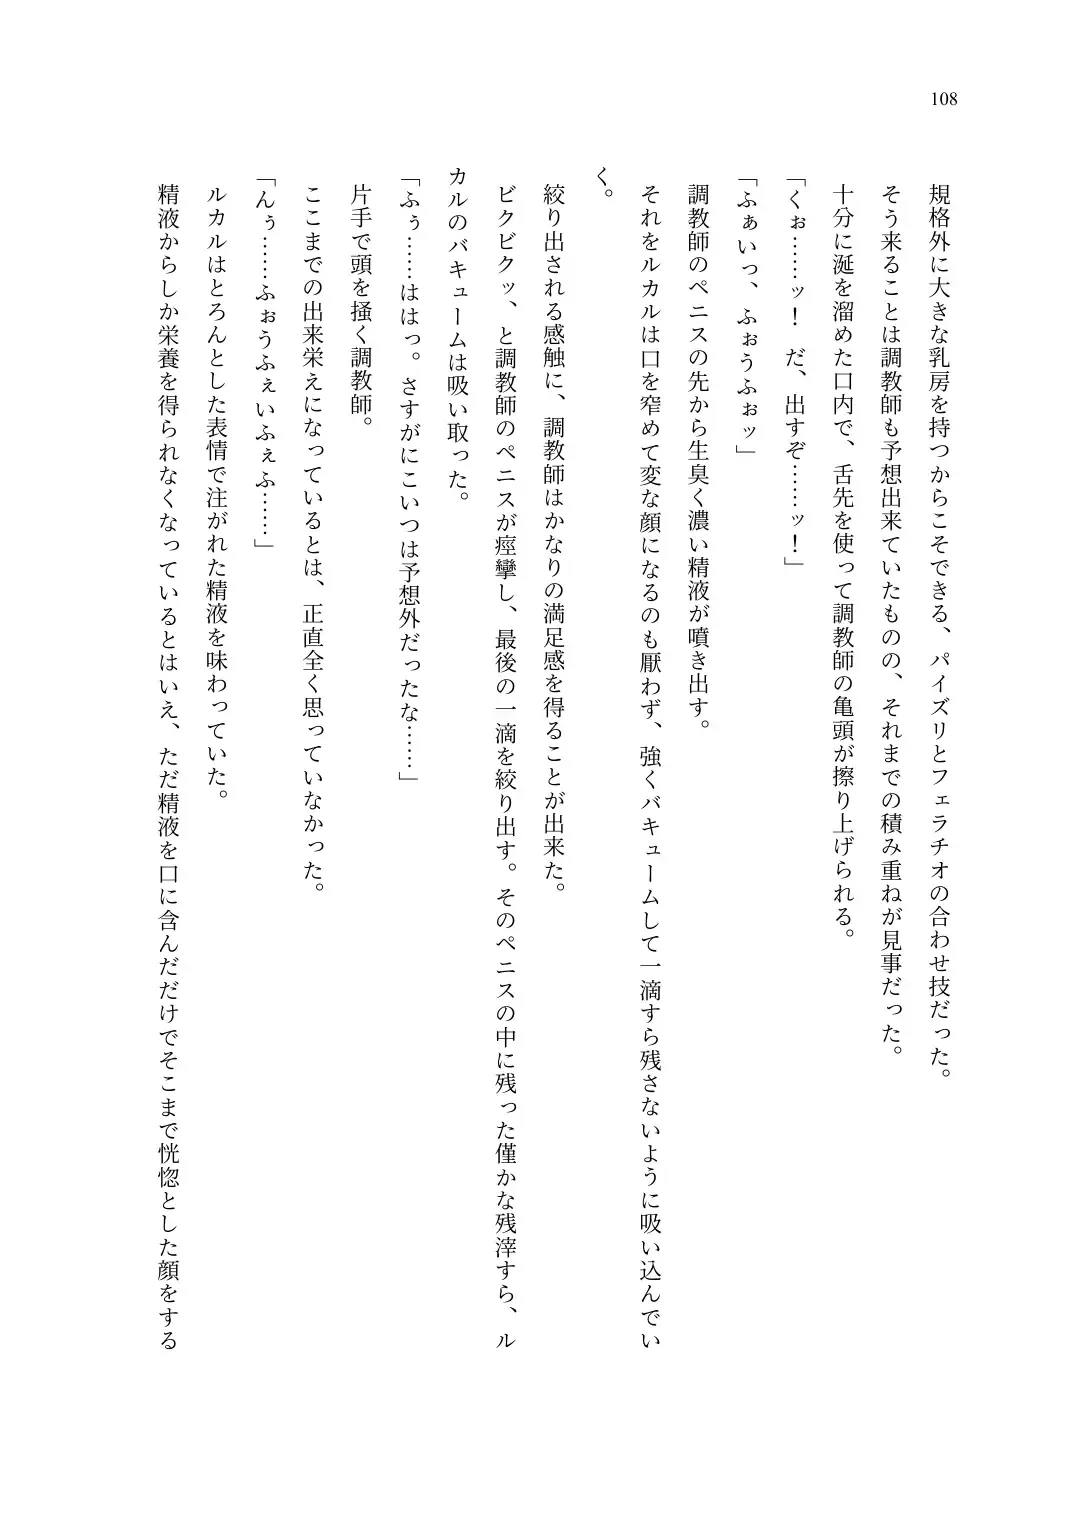 108
規格外に大きな乳房を持つからこそできる、パイズリとフェラチオの合わせ技だった。
そう来ることは調教師も予想出来ていたものの、それまでの積み重ねが見事だった。
十分に涎を溜めた口内で、舌先を使って調教師の亀頭が擦り上げられる。
「くぉ……ッ！　だ、出すぞ……ッ！」
「ふぁいっ、ふぉうふぉッ」
調教師のペニスの先から生臭く濃い精液が噴き出す。
それをルカルは口を窄めて変な顔になるのも厭わず、強くバキュームして一滴すら残さないように吸い込んでい
く。
絞り出される感触に、調教師はかなりの満足感を得ることが出来た。
ビクビクッ、と調教師のペニスが痙攣し、最後の一滴を絞り出す。そのペニスの中に残った僅かな残滓すら、ル
カルのバキュームは吸い取った。
「ふぅ……ははっ。さすがにこいつは予想外だったな……」
片手で頭を掻く調教師。
ここまでの出来栄えになっているとは、正直全く思っていなかった。
「んぅ……ふぉうふぇいふぇふ……」
ルカルはとろんとした表情で注がれた精液を味わっていた。
精液からしか栄養を得られなくなっているとはいえ、ただ精液を口に含んだだけでそこまで恍惚とした顔をする